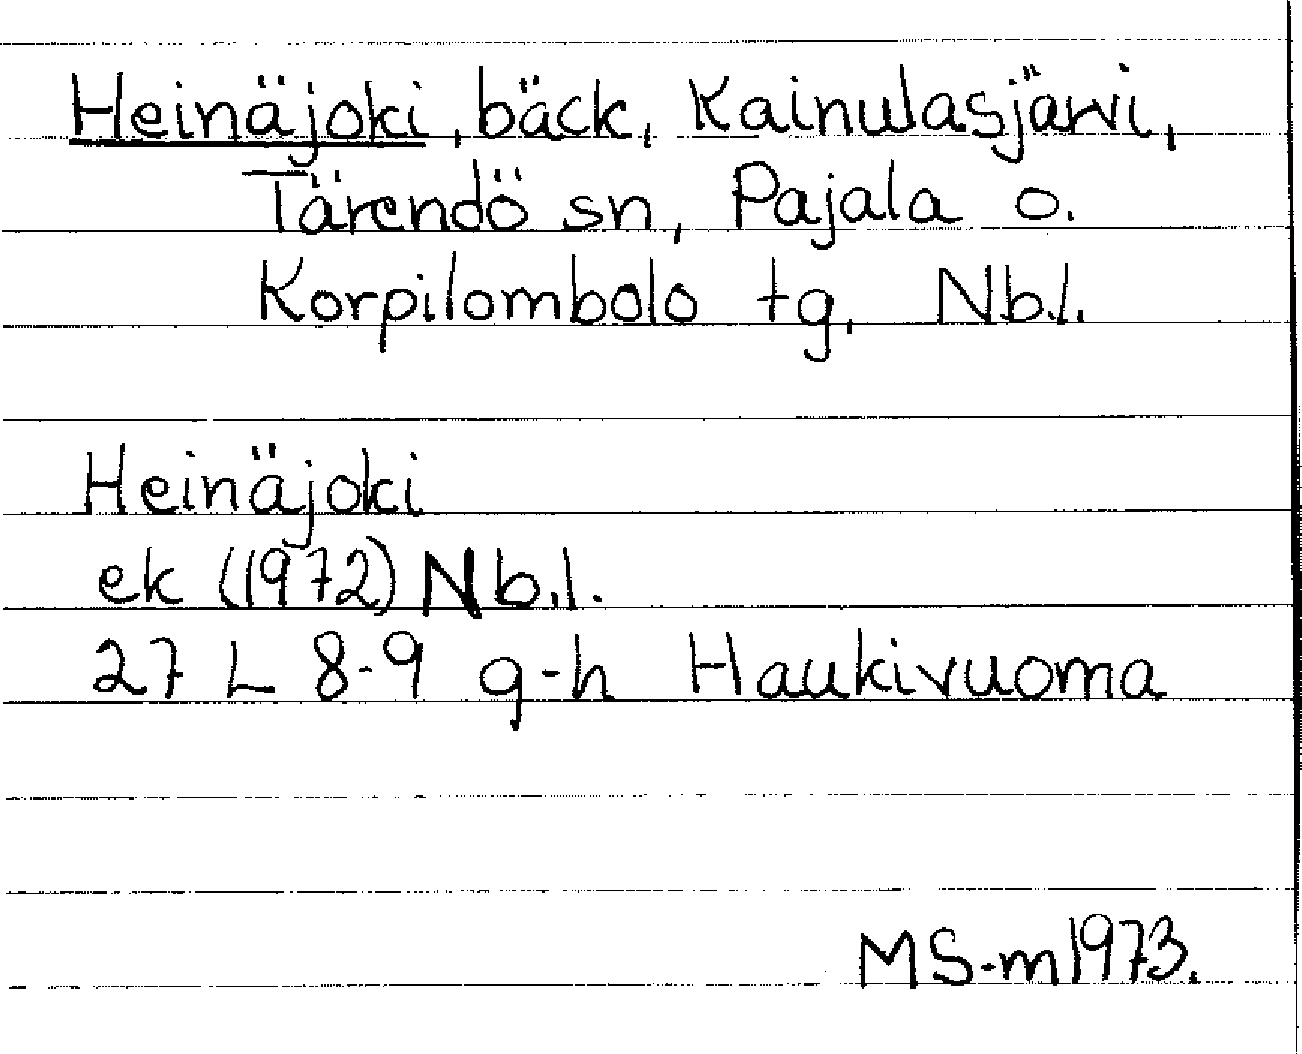 Heinäjoki, bäck, Kainulasjärvi,
Tärendö sn, Pajala o.
Korpilombolo tg, Nb.l.
Heinäjoki
ek (1972) Nb.l.
27 L 8-9 g-h Haukivuoma
MS-m 1973.